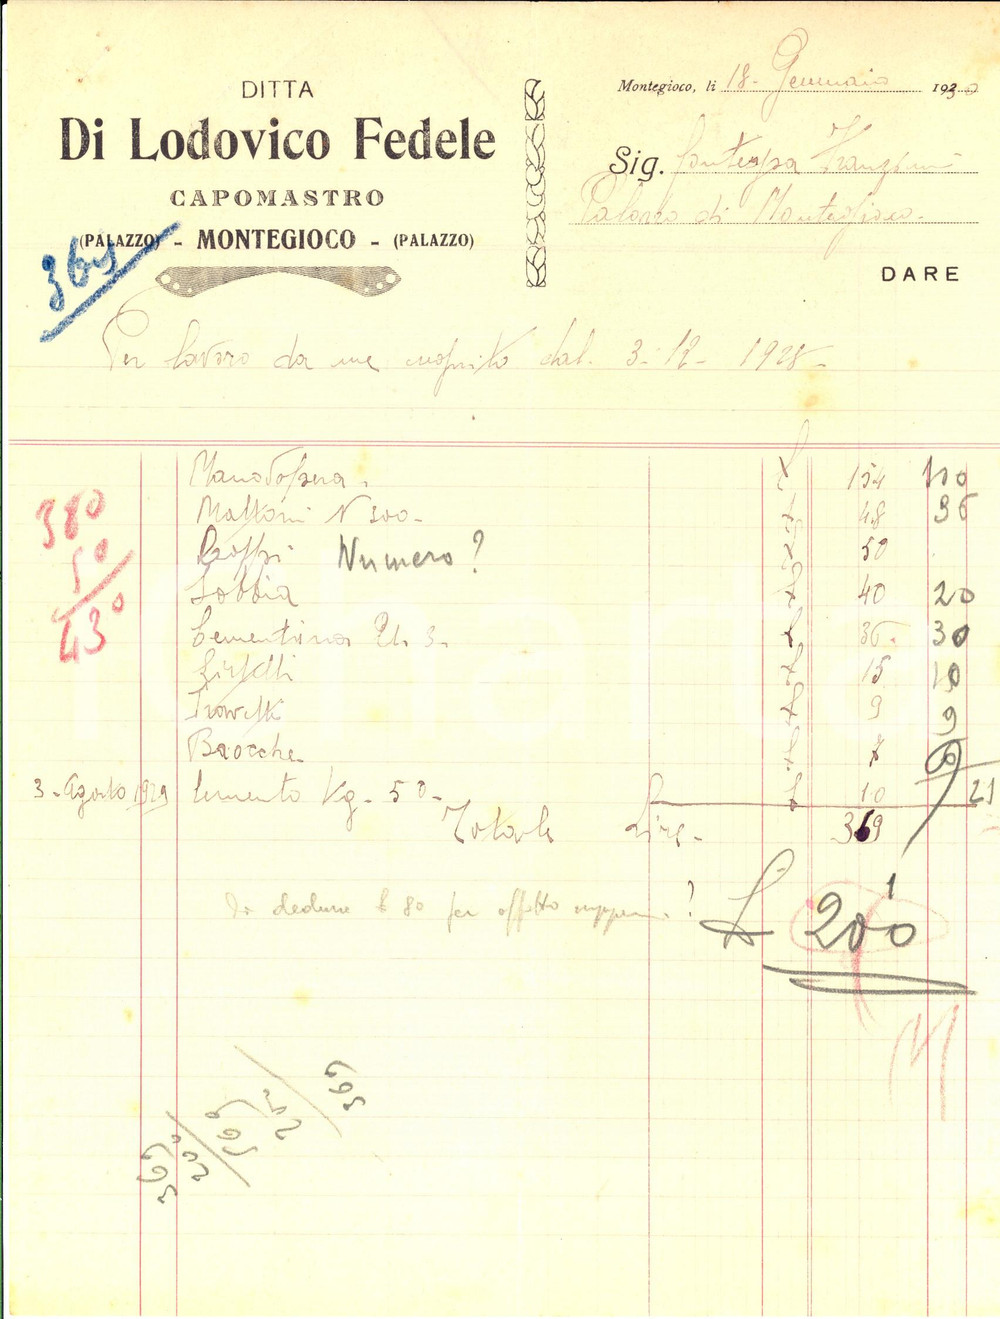 DITTA
Di Lodovico Fedele
CAPOMASTRO
(PALAZZO) - MONTEGIOCO - (PALAZZO)
369
Montegioco, li 18 - Gennaio 1930
Sig. Contessa
Palazzo di Montegioco.
DARE
Per lavoro da me eseguito dal. 3-12-1928-
Manodopera. L 154 100
Mattoni N 300- 48 36
Numero? 50
Sabbia 40 20
Cementina Ql. 3. 36. 30
15 10
9 9
Brocche 7 6
3-Agosto 1929 Cemento Kg. 50- 10 21
Totale Lire- 369
380
50
430
da dedurre £ 80 per affitto ?
£ 200
M
369
200
569
25
369